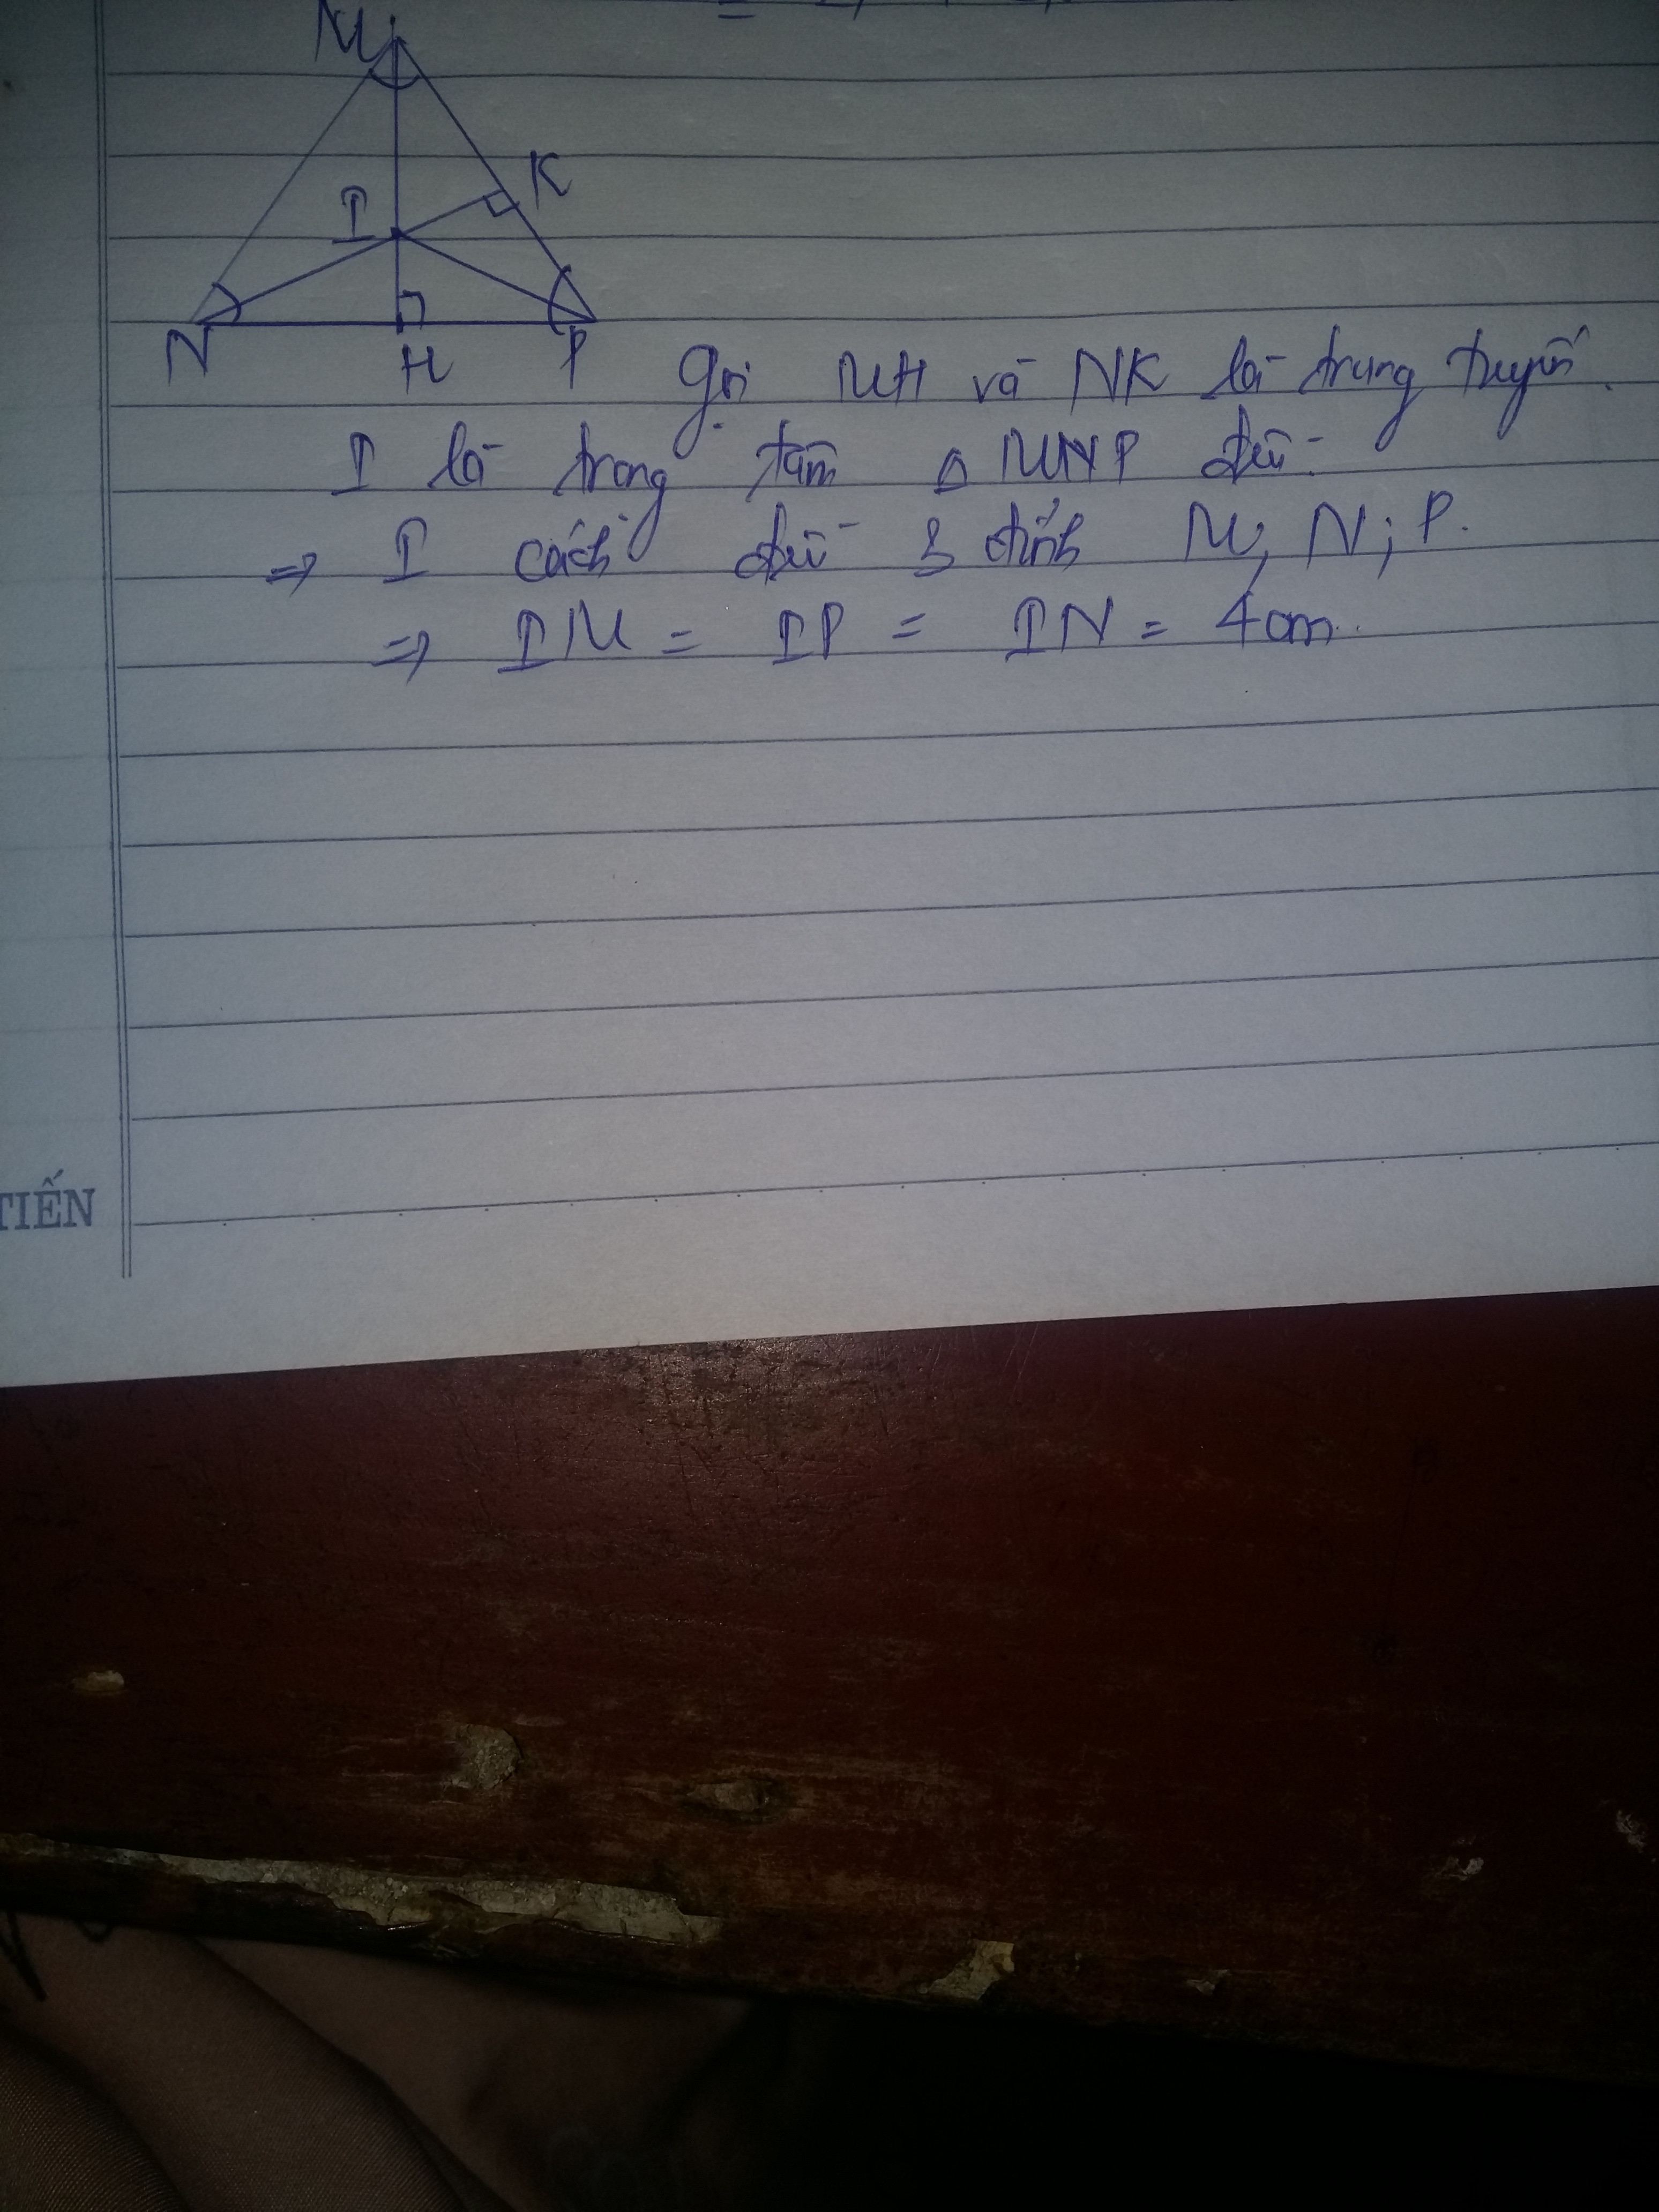 M
K
I
N
H
P
Gọi MH và NK là trung tuyến.
I là trọng tâm △ MNP đều
=> I cách đều 3 đỉnh M, N; P.
=> IM = IP = IN = 4cm.
TIẾN